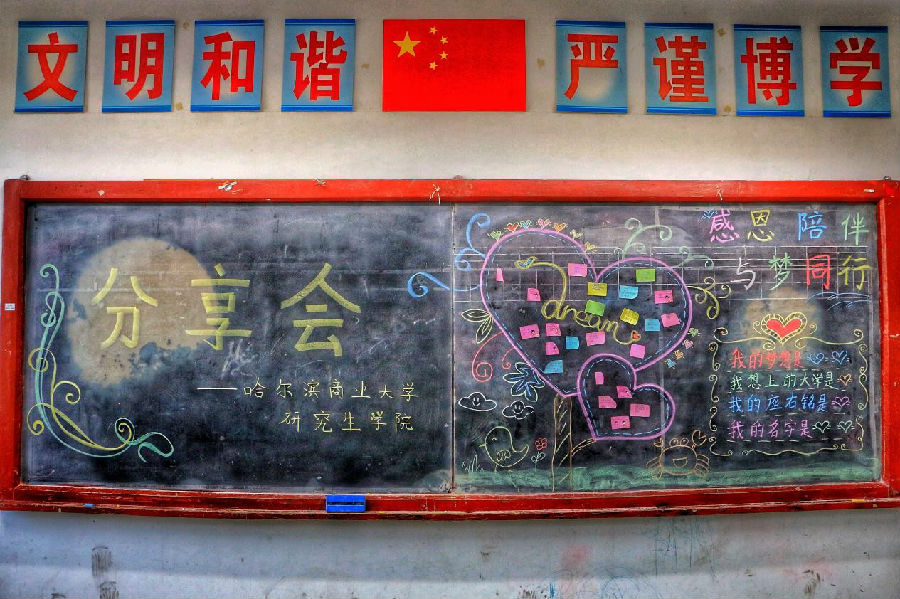 文明和谐
严谨博学
分享会
——哈尔滨商业大学
研究生学院
dream
感恩 陪伴
与梦同行
我的梦想是
我想上的大学是
我的座右铭是
我的名字是